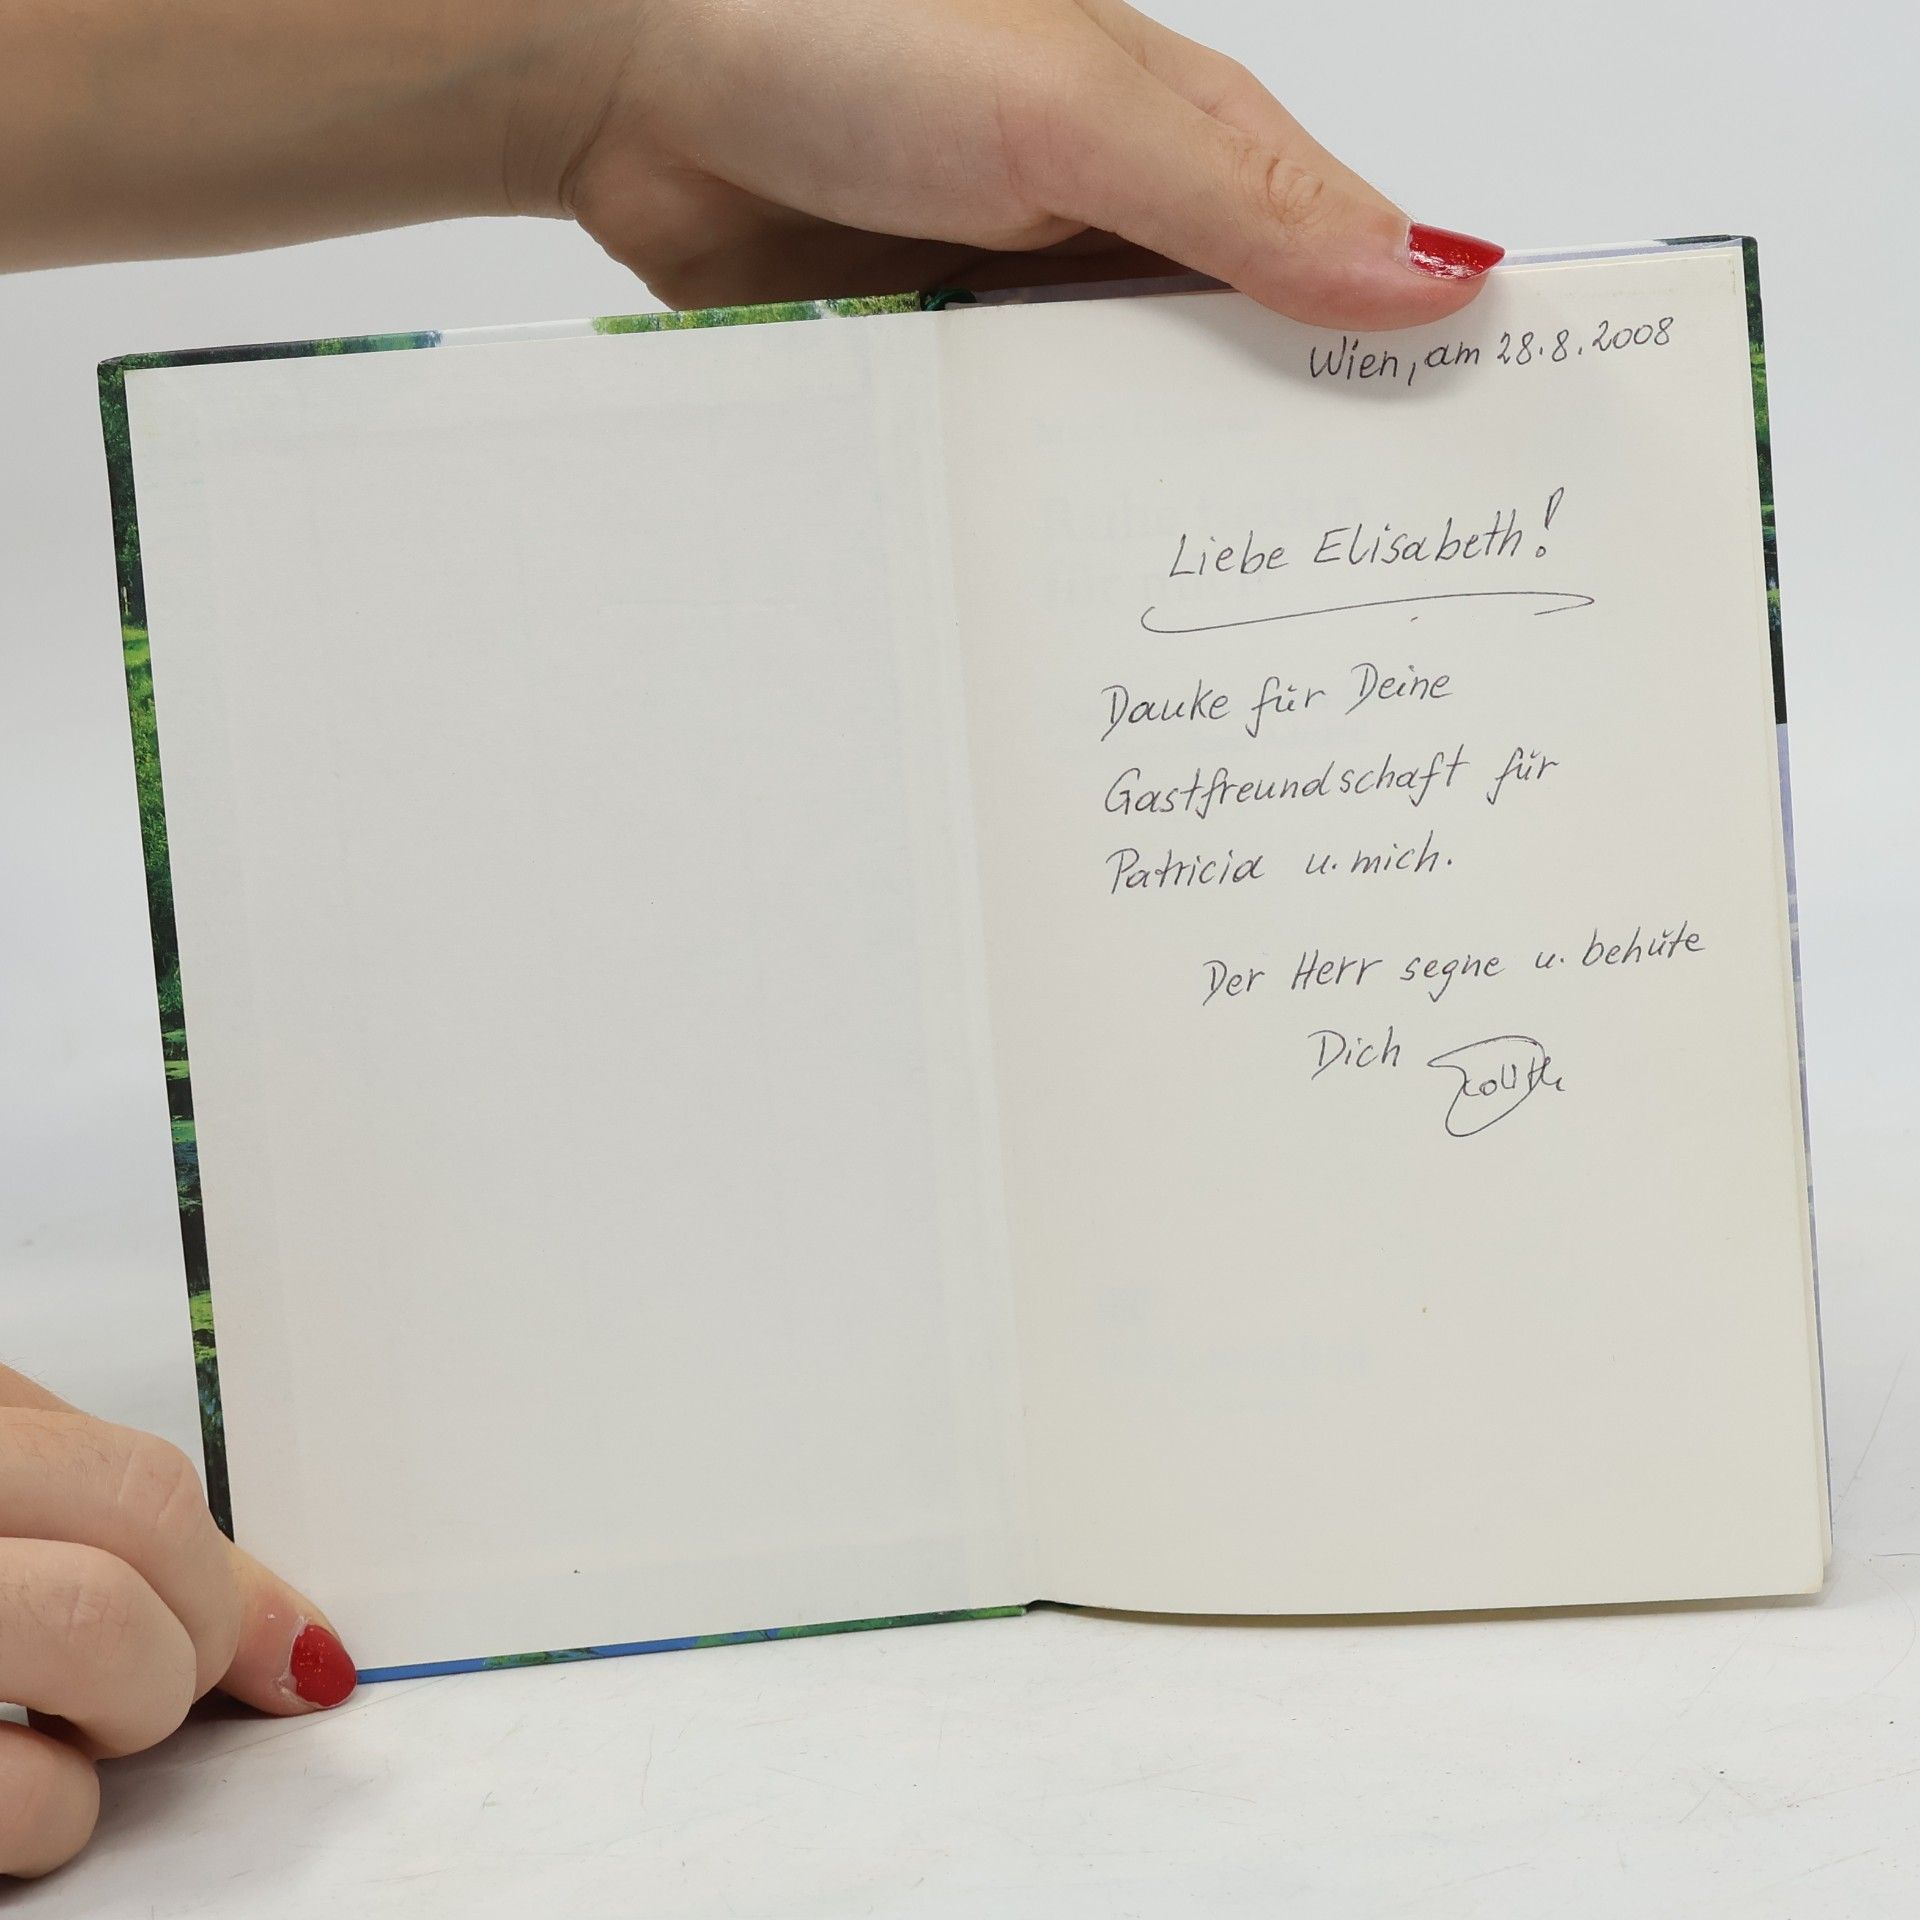 Wien, am 28.8.2008
Liebe Elisabeth!
Danke für Deine
Gastfreundschaft für
Patricia u. mich.
Der Herr segne u. behüte
Dich